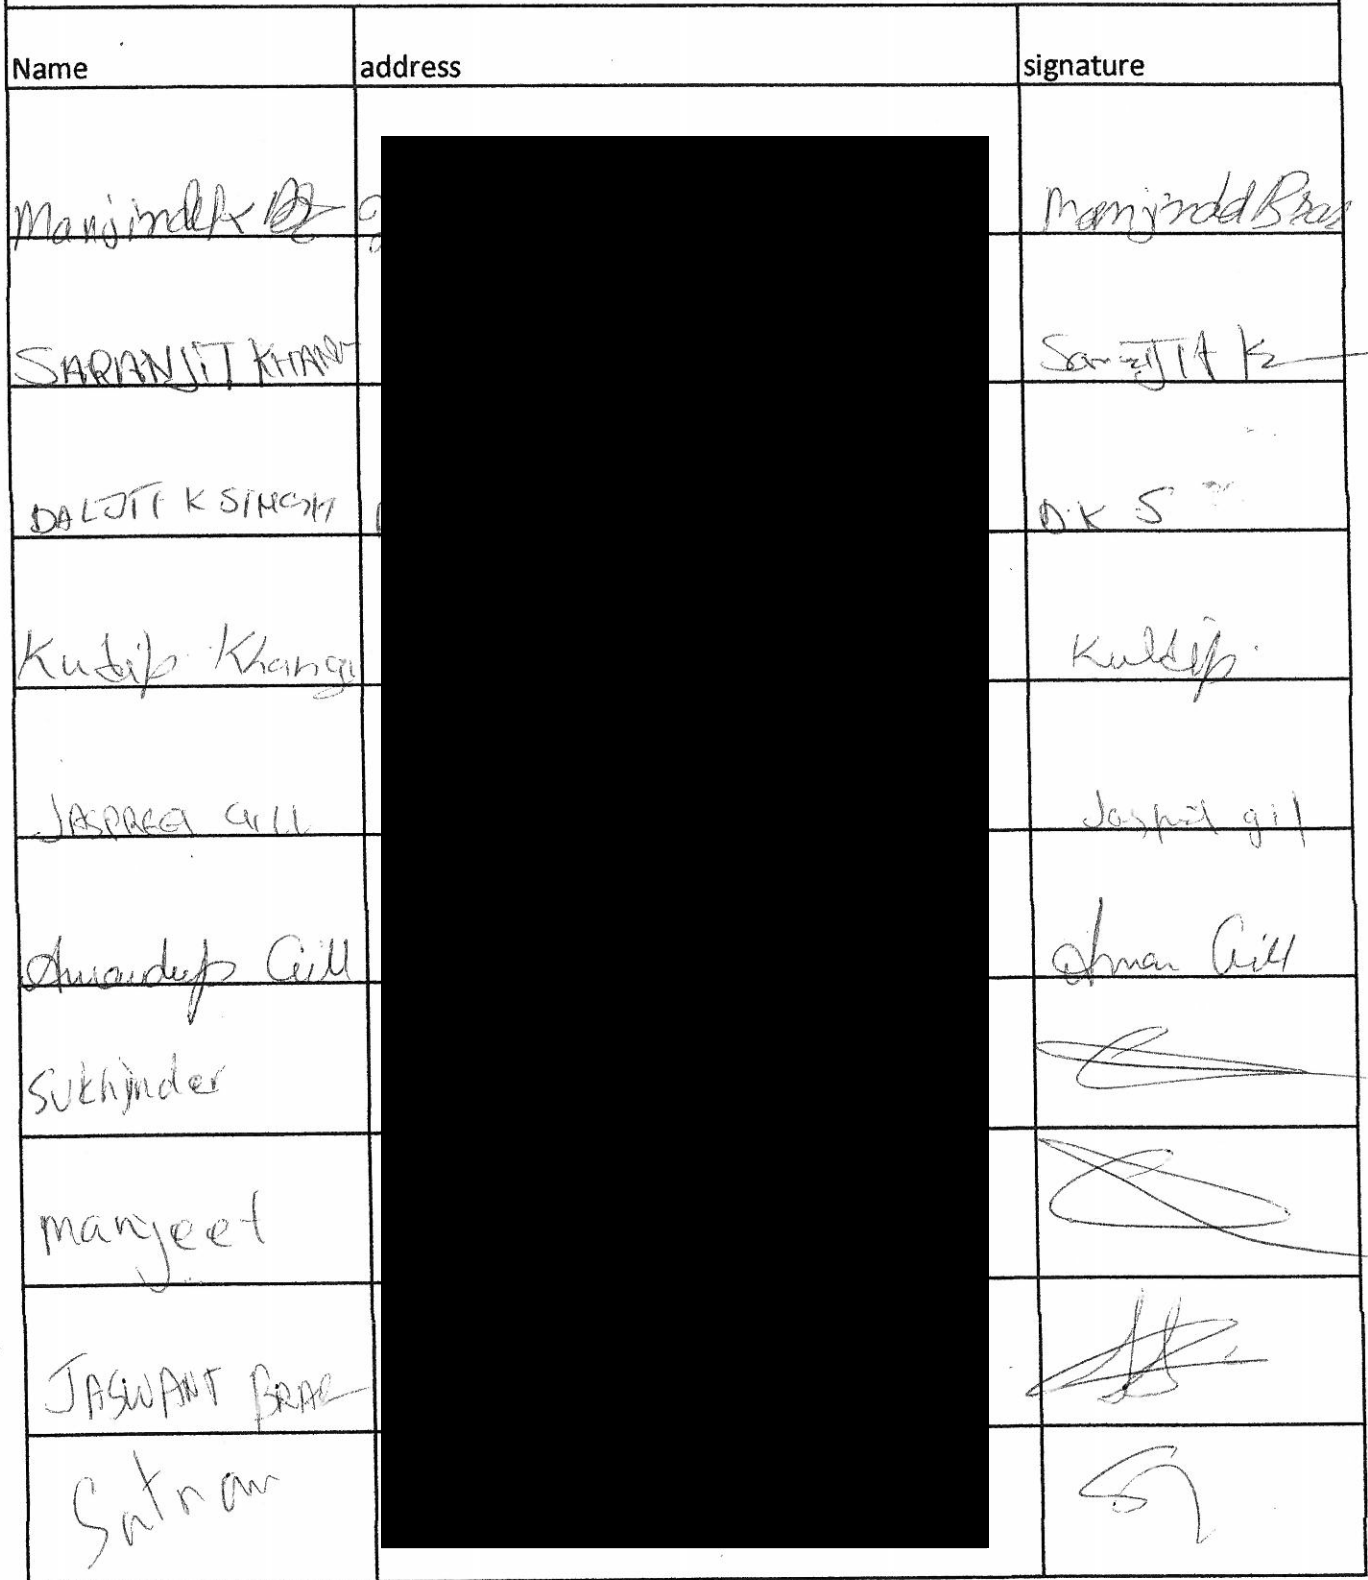 Name address signature
Manjinder Manjinder Brar
SARANJIT KHAN Saranjit K
DALJIT K SINGH D.K S
Kuldip Khang Kuldip
JASPREET GILL Jasprit gill
Amandeep Gill Aman Gill
Sukhjinder
manjeet
JASWANT BRAR
Satnam